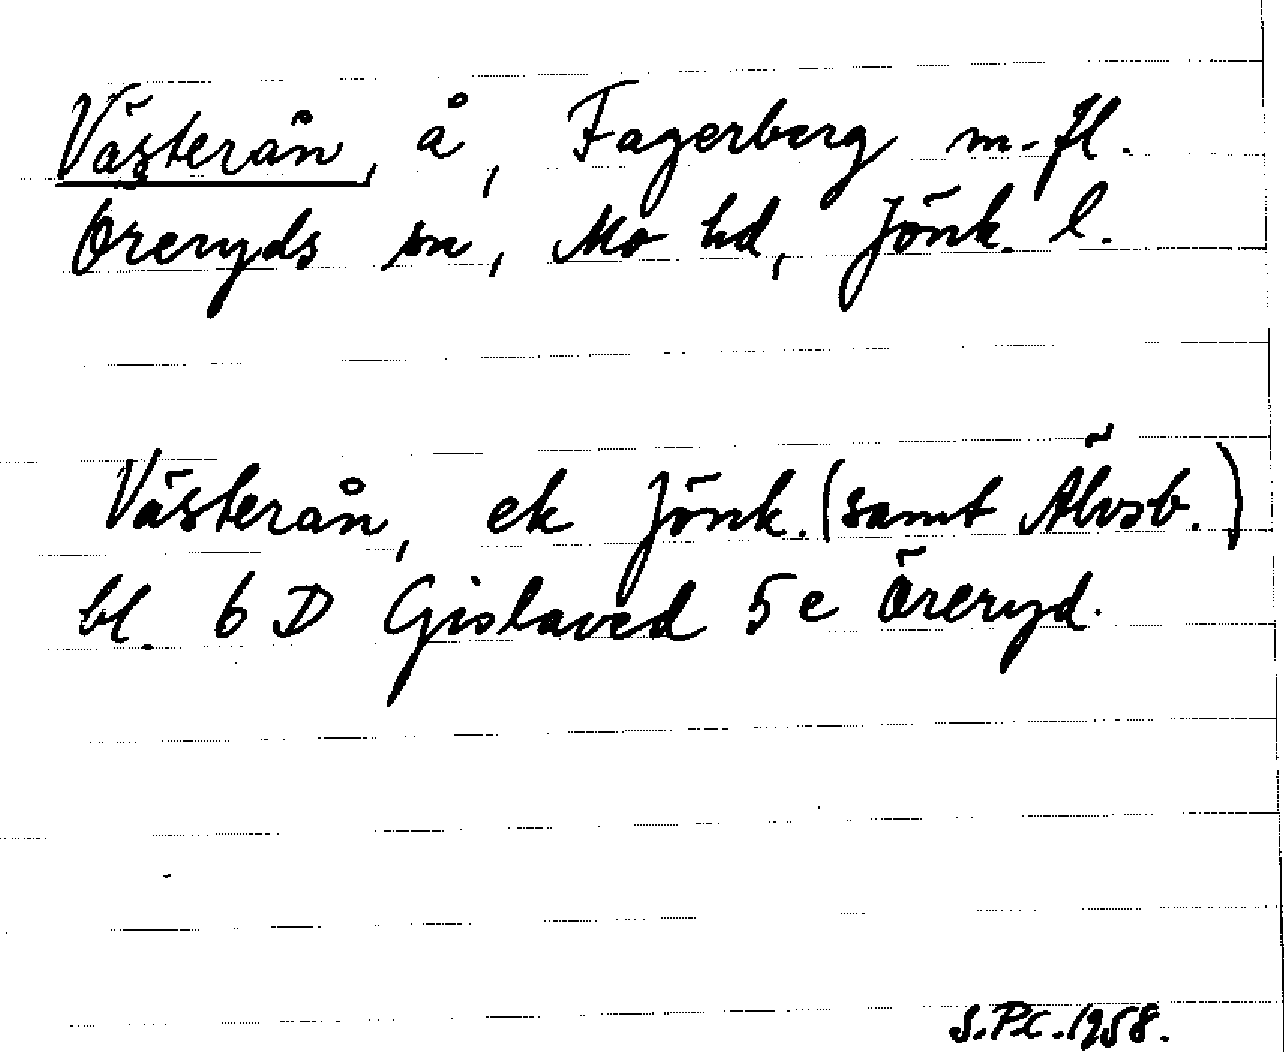 Västerån, å, Fagerberg m. fl.
Öreryds sn, Mo hd, Jönk. l.
Västerån, ek Jönk. (samt Älvsb.)
bl. 6 D Gislaved 5e Öreryd.
S.P.C. 1958.